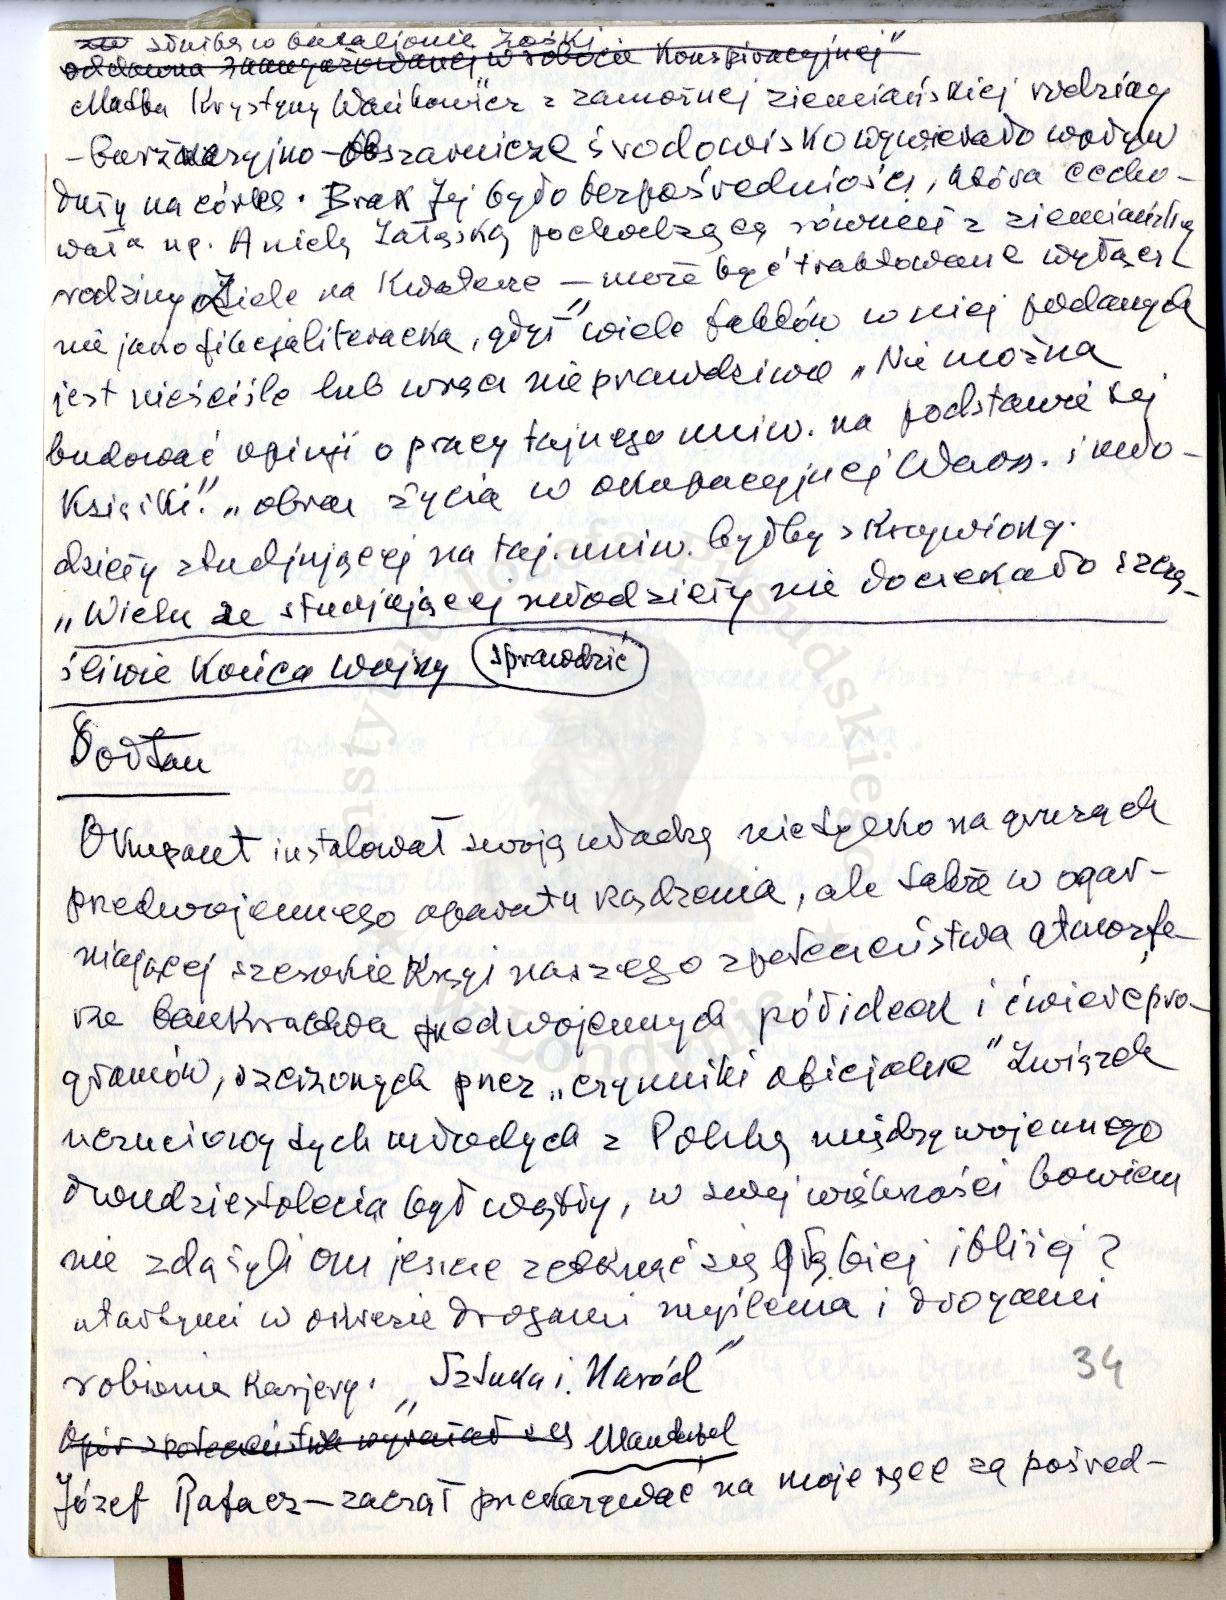 służba w bataljonie Zośki
oddawna zaangażowanej w robocie konspiracyjnej"
Matka Krystyny Wańkowicz z zamożnej ziemiańskiej rodziny
– burżuazyjno-obszarnicze środowisko wywierało wpływ
duży na córkę. Brak Jej było bezpośredniości, która cecho-
wała np. Anielę Załęską pochodzącą również z ziemiańskiej
rodziny „Ziele na Kraterze – może być traktowane wyłącz
nie jako fikcja literacka, gdyż" wiele faktów w niej podanych
jest nieściśle lub wręcz nieprawdziwie „Nie można
budować opinji o pracy tajnego uniw. na podstawie tej
Książki." „obraz życia w okupacyjnej Warsz. i mło-
dzieży studjującej na taj. uniw. byłby skrzywiony.
„Wielu ze studjującej młodzieży nie doczekało szczę-
śliwie końca wojny sprawdzić
Sołtan
Okupant instalował swoją władzę nietylko na gruzach
przedwojennego aparatu rządzenia, ale także w ogar-
niającej szerokie kręgi naszego społeczeństwa atmosfe-
rze bankructwa przedwojennych półidei i ćwierćpro-
gramów, szerzonych przez „czynniki oficjalne" Związek
uczuciowy tych młodych z Polską międzywojennego
dwudziestolecia był wątły, w swej większości bowiem
nie zdążyli oni jeszcze zetknąć się głębiej i bliżej z
utartymi w okresie drogami myślenia i drogami
robienia karjery. „Sztuka i Naród" 34
Opór społeczeństwa wyrażał się Mandubel
Józef Rafacz – zaczął przekazywać na moje ręce za pośred-
Instytut Józefa Piłsudskiego w Londynie